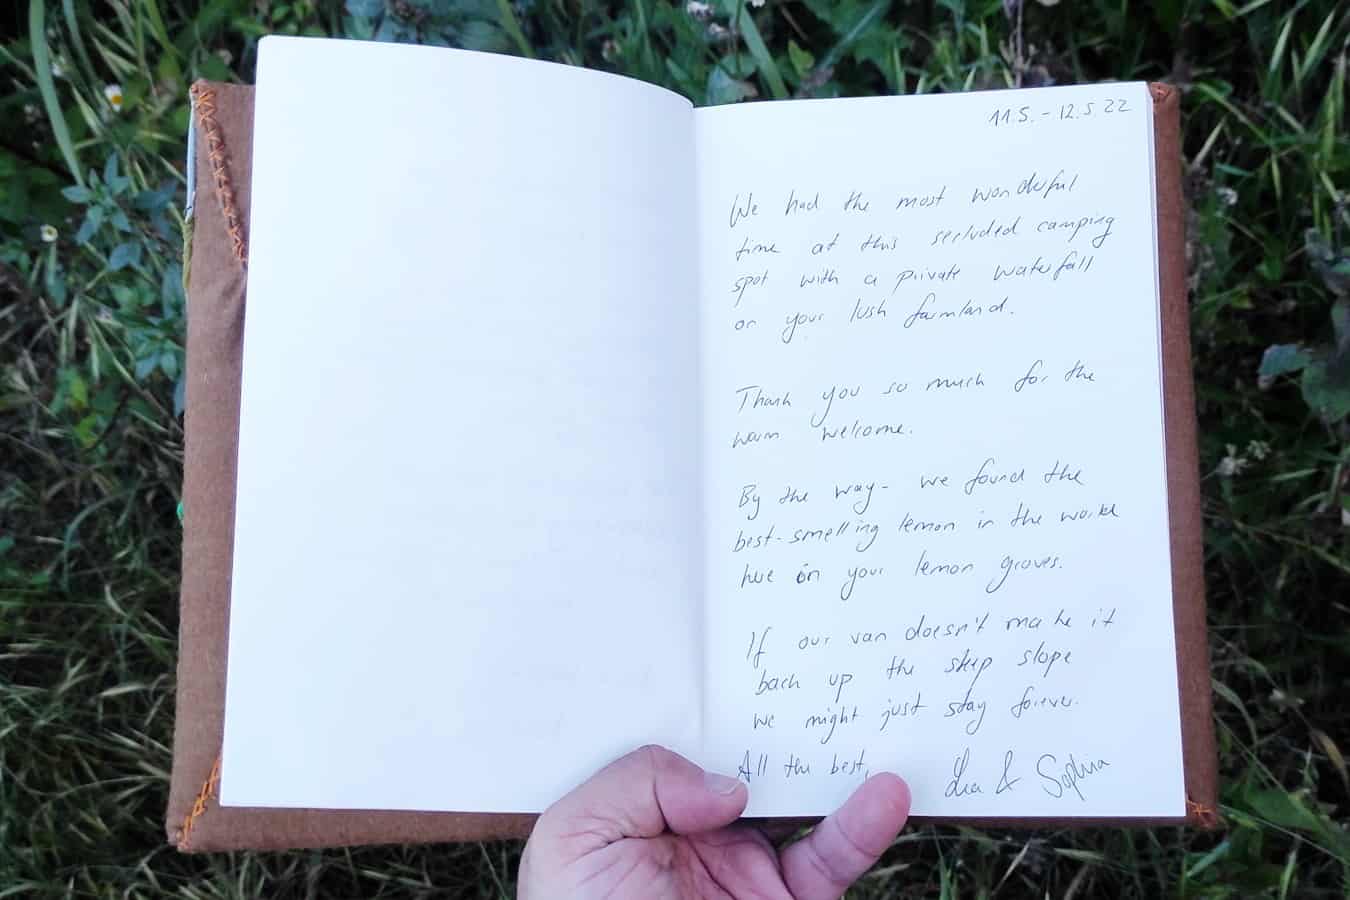 11.5. - 12.5.22
We had the most wonderful
time at this secluded camping
spot with a private waterfall
on your lush farmland.
Thank you so much for the
warm welcome.
By the way - we found the
best-smelling lemon in the world
here in your lemon groves.
If our van doesn't make it
back up the steep slope
we might just stay forever.
All the best,
Lea & Sophia